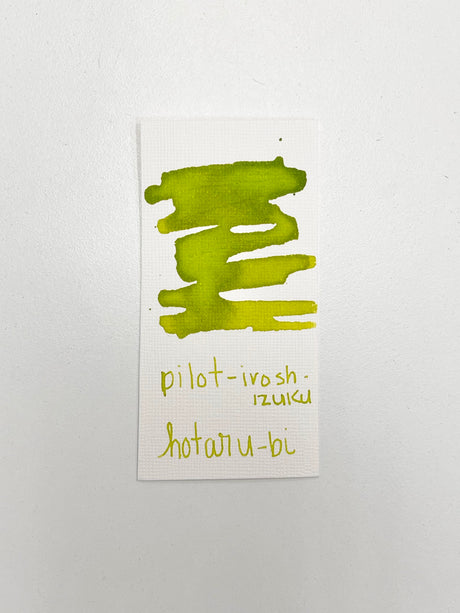 pilot-irosh-
IZUKU
hotaru-bi